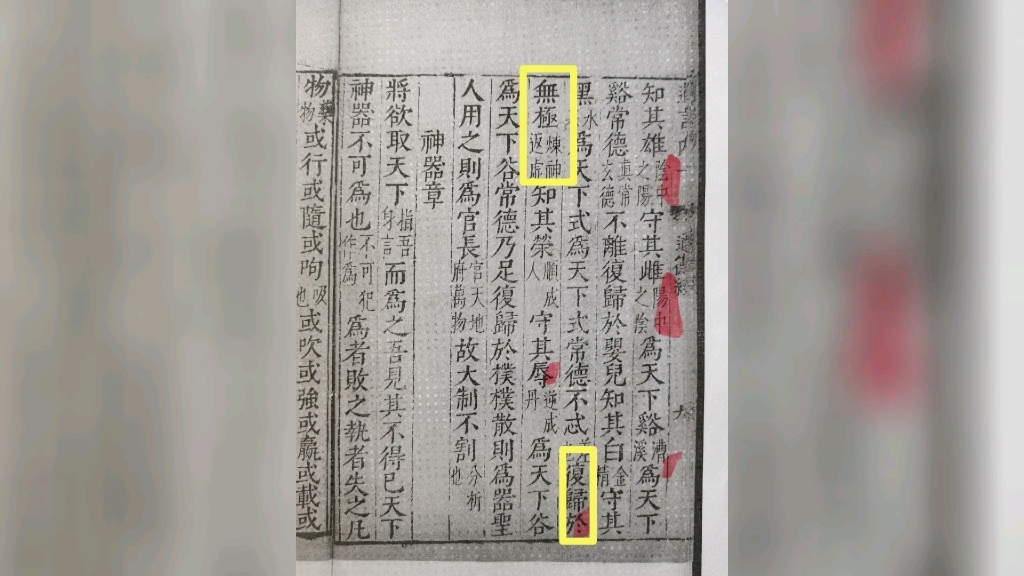 知其雄陰中之陽守其雌陽中之陰爲天下谿漕溪爲天下
谿常德真常玄德不離復歸於嬰兒知其白金精守其
黑水爲天下式爲天下式常德不忒差也復歸於
無極煉神返虛知其榮順成人守其辱逆成丹爲天下谷
爲天下谷常德乃足復歸於樸樸散則爲器聖
人用之則爲官長官天地府萬物故大制不割分析也
神器章
將欲取天下指吾身言而爲之吾見其不得已天下
神器不可爲也不可犯作爲爲者敗之執者失之凡
物萬物或行或隨或呴吸也或吹或強或羸或載或